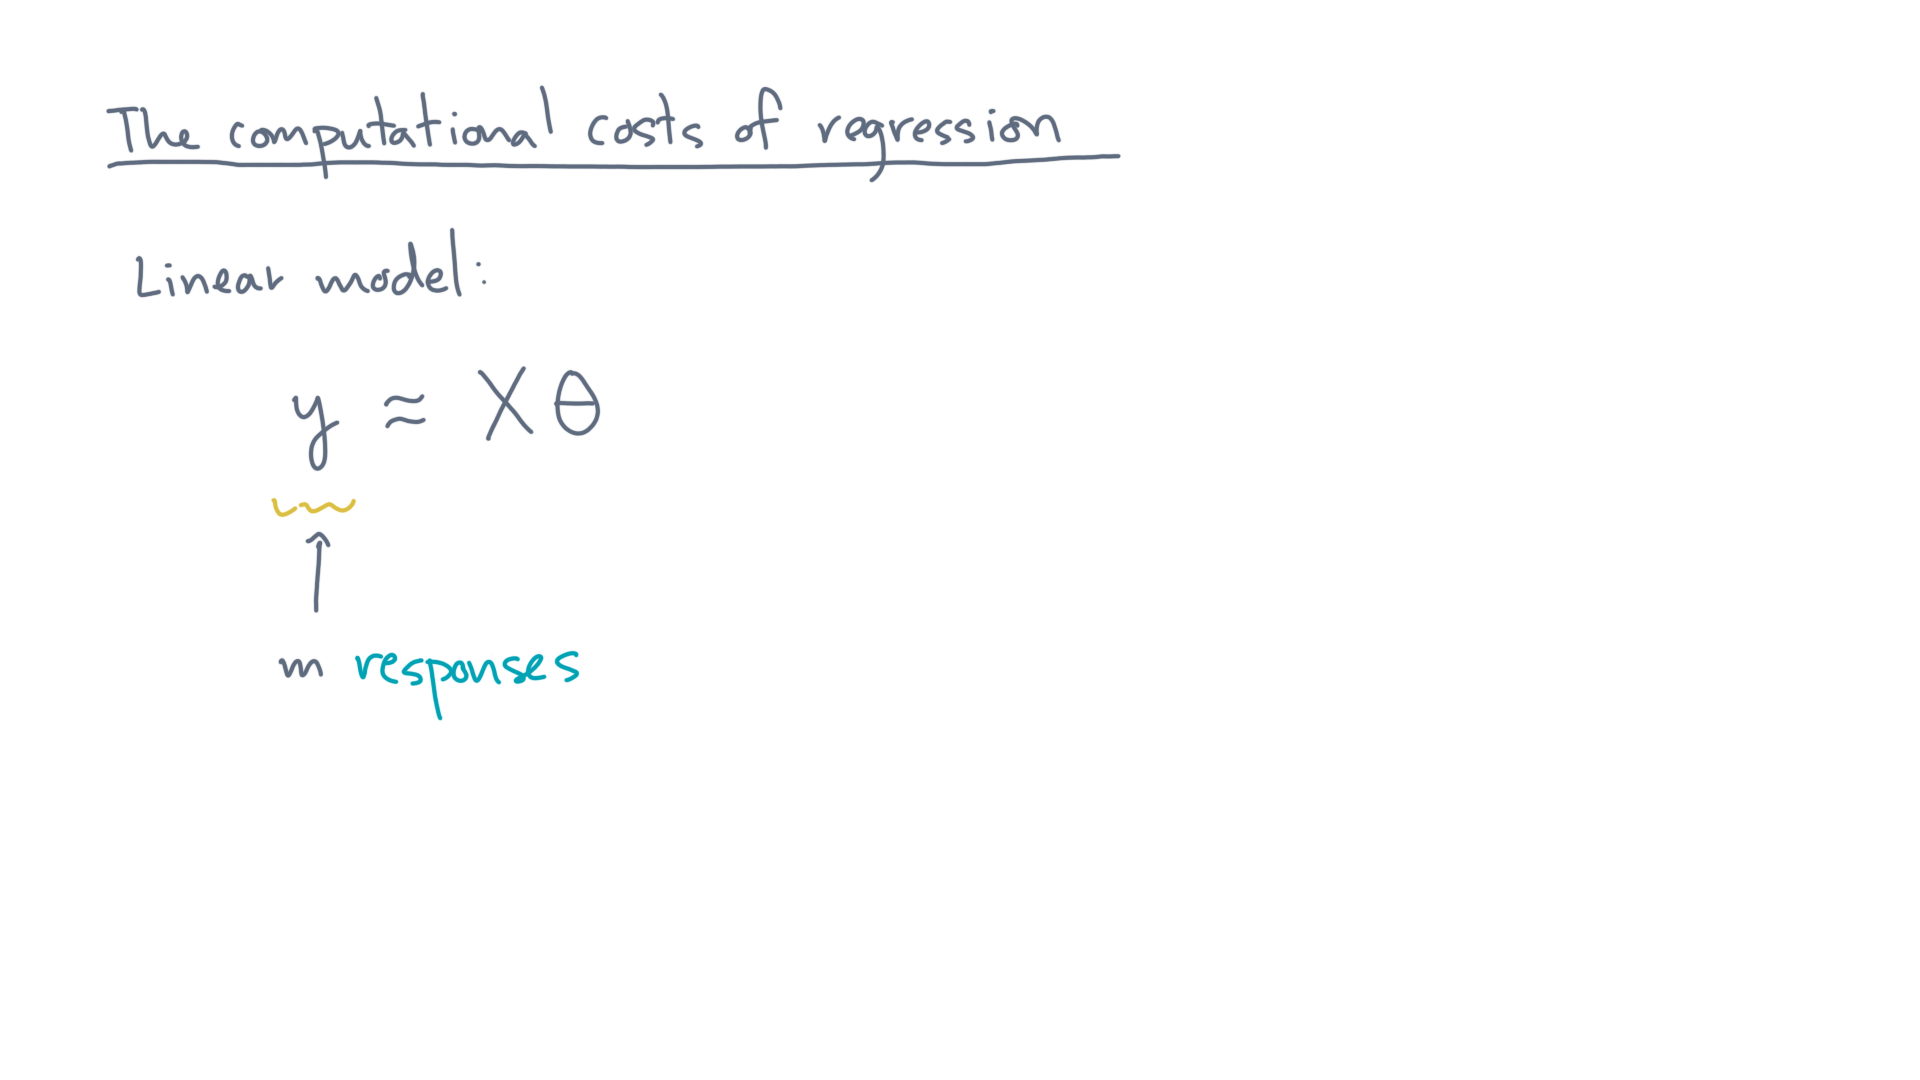 The computational costs of regression
Linear model:
y ≈ Xθ
m responses